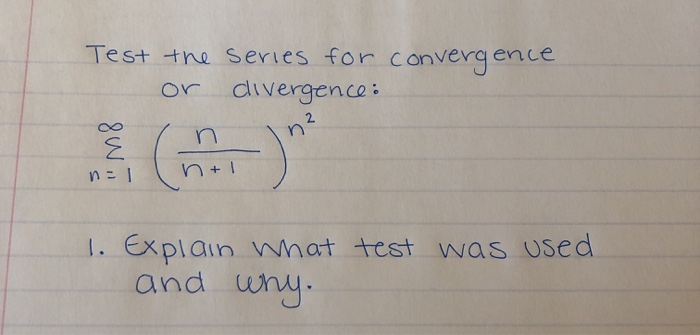 Test the series for convergence
or divergence:
∞
Σ (n/(n+1))^n²
n=1
1. Explain what test was used
and why.